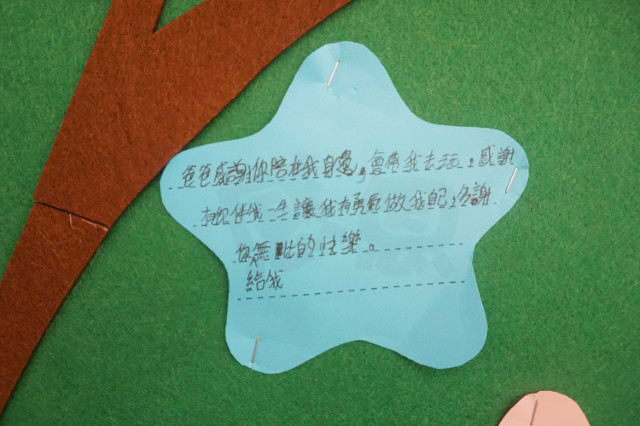 爸爸感謝你陪在我身邊,會帶我去玩。感謝
你一生讓我有勇氣做我自己,多謝
你無比的快樂。
給我